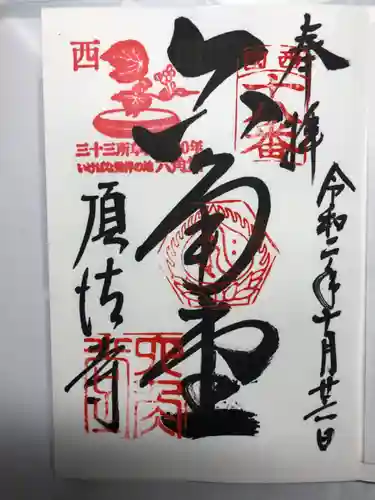 奉拝
令和二年十月廿二日
西国
十八番
六角堂
西
三十三所草創1300年
いけばな発祥の地 六角堂
頂法寺